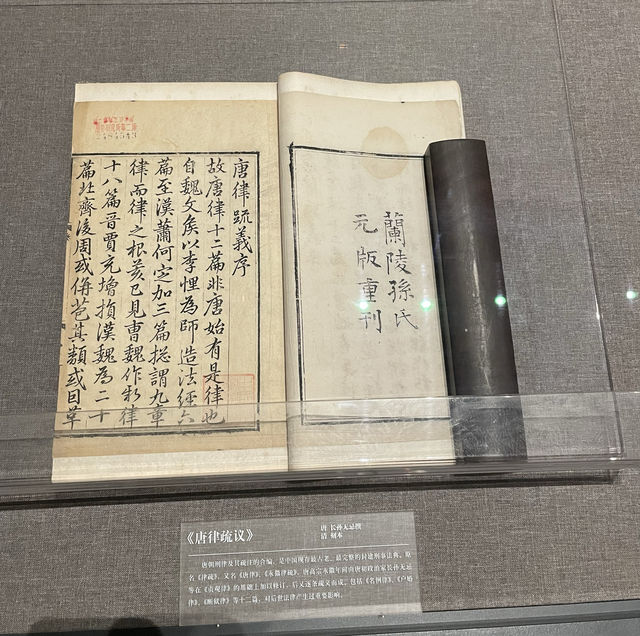 蘭陵孫氏
元版重刊
唐律疏義序
故唐律十二篇非唐始有是律也
自魏文矦以李悝為師造法經六
篇至漢蕭何定加三篇総謂九章
律而律之根荄已見曹魏作新律
十八篇晉賈充增損漢魏為二十
篇北齊後周或併苞其類或因革
2484543
《唐律疏议》
唐 长孙无忌撰
清 刻本
唐朝刑律及其疏注的合编，是中国现存最古老、最完整的封建刑事法典。原
名《律疏》，又名《唐律》、《永徽律疏》。唐高宗永徽年间由唐初政治家长孙无忌
等在《贞观律》的基础上加以修订，后又逐条疏义而成。包括《名例律》、《户婚
律》、《断狱律》等十二篇，对后世法律产生过重要影响。